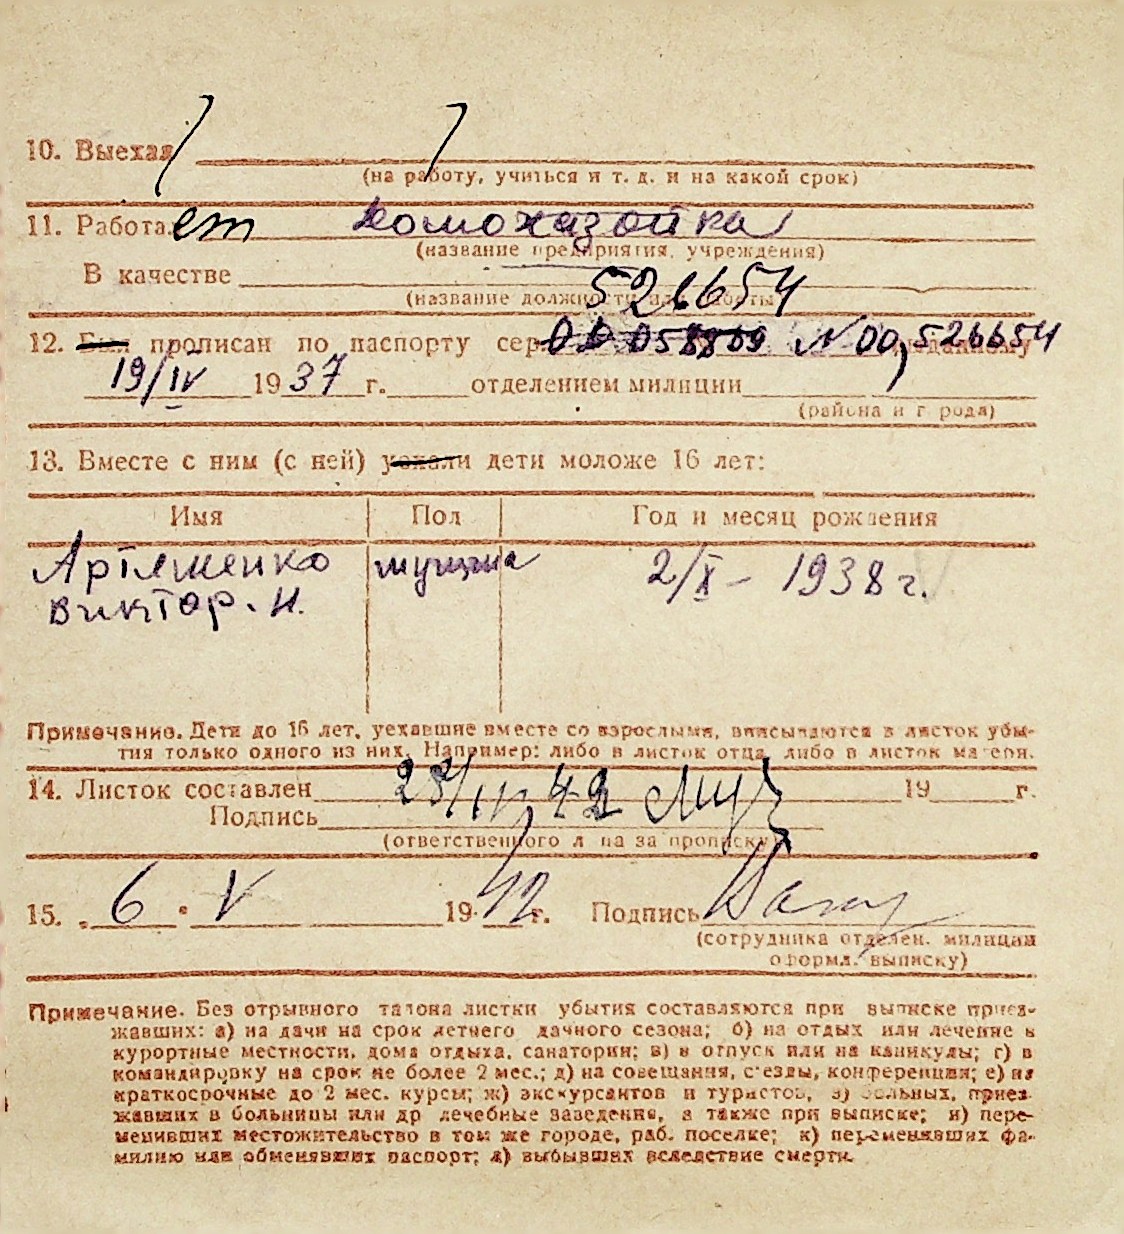 10. Выехал
(на работу, учиться и т. д. и на какой срок)
11. Работает домохазойка
(название предприятия, учреждения)
В качестве
526654
(название должности или работы)
12. Был прописан по паспорту сер. 058809 № 00, 526654 выданному
19/IV 1937 г. отделением милиции
(района и города)
13. Вместе с ним (с ней) уехали дети моложе 16 лет:
Имя Пол Год и месяц рождения
Артеменко мущина 2/X - 1938 г.
Виктор. И.
Примечание. Дети до 16 лет, уехавшие вместе со взрослыми, вписываются в листок убы-
тия только одного из них. Например: либо в листок отца, либо в листок матери.
14. Листок составлен 28/IV 42 19 г.
Подпись
(ответственного лица за прописку)
15. „6" V 1942 г. Подпись
(сотрудника отделен. милиции
оформл. выписку)
Примечание. Без отрывного талона листки убытия составляются при выписке приез-
жавших: а) на дачи на срок летнего дачного сезона; б) на отдых или лечение в
курортные местности, дома отдыха, санатории; в) в отпуск или на каникулы; г) в
командировку на срок не более 2 мес.; д) на совещания, съезды, конференции; е) на
краткосрочные до 2 мес. курсы; ж) экскурсантов и туристов, з) больных, приез-
жавших в больницы или др лечебные заведения, а также при выписке; и) пере-
менивших местожительство в том же городе, раб. поселке; к) переменявших фа-
милию или обменявших паспорт; л) выбывших вследствие смерти.